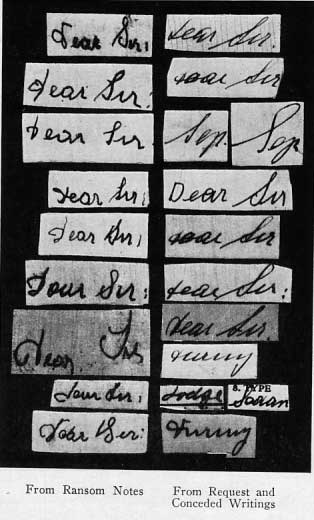 Dear Sir: Dear Sir.
Dear Sir: Dear Sir
Dear Sir. Sep. Sep
Dear Sir; Dear Sir
Dear Sir; Dear Sir
Dear Sir: Dear Sir:
Dear Sir Dear Sir.
Dear Sir; Dodge 8. TYPE Sedan
Dear Sir:
From Ransom Notes
From Request and
Conceded Writings